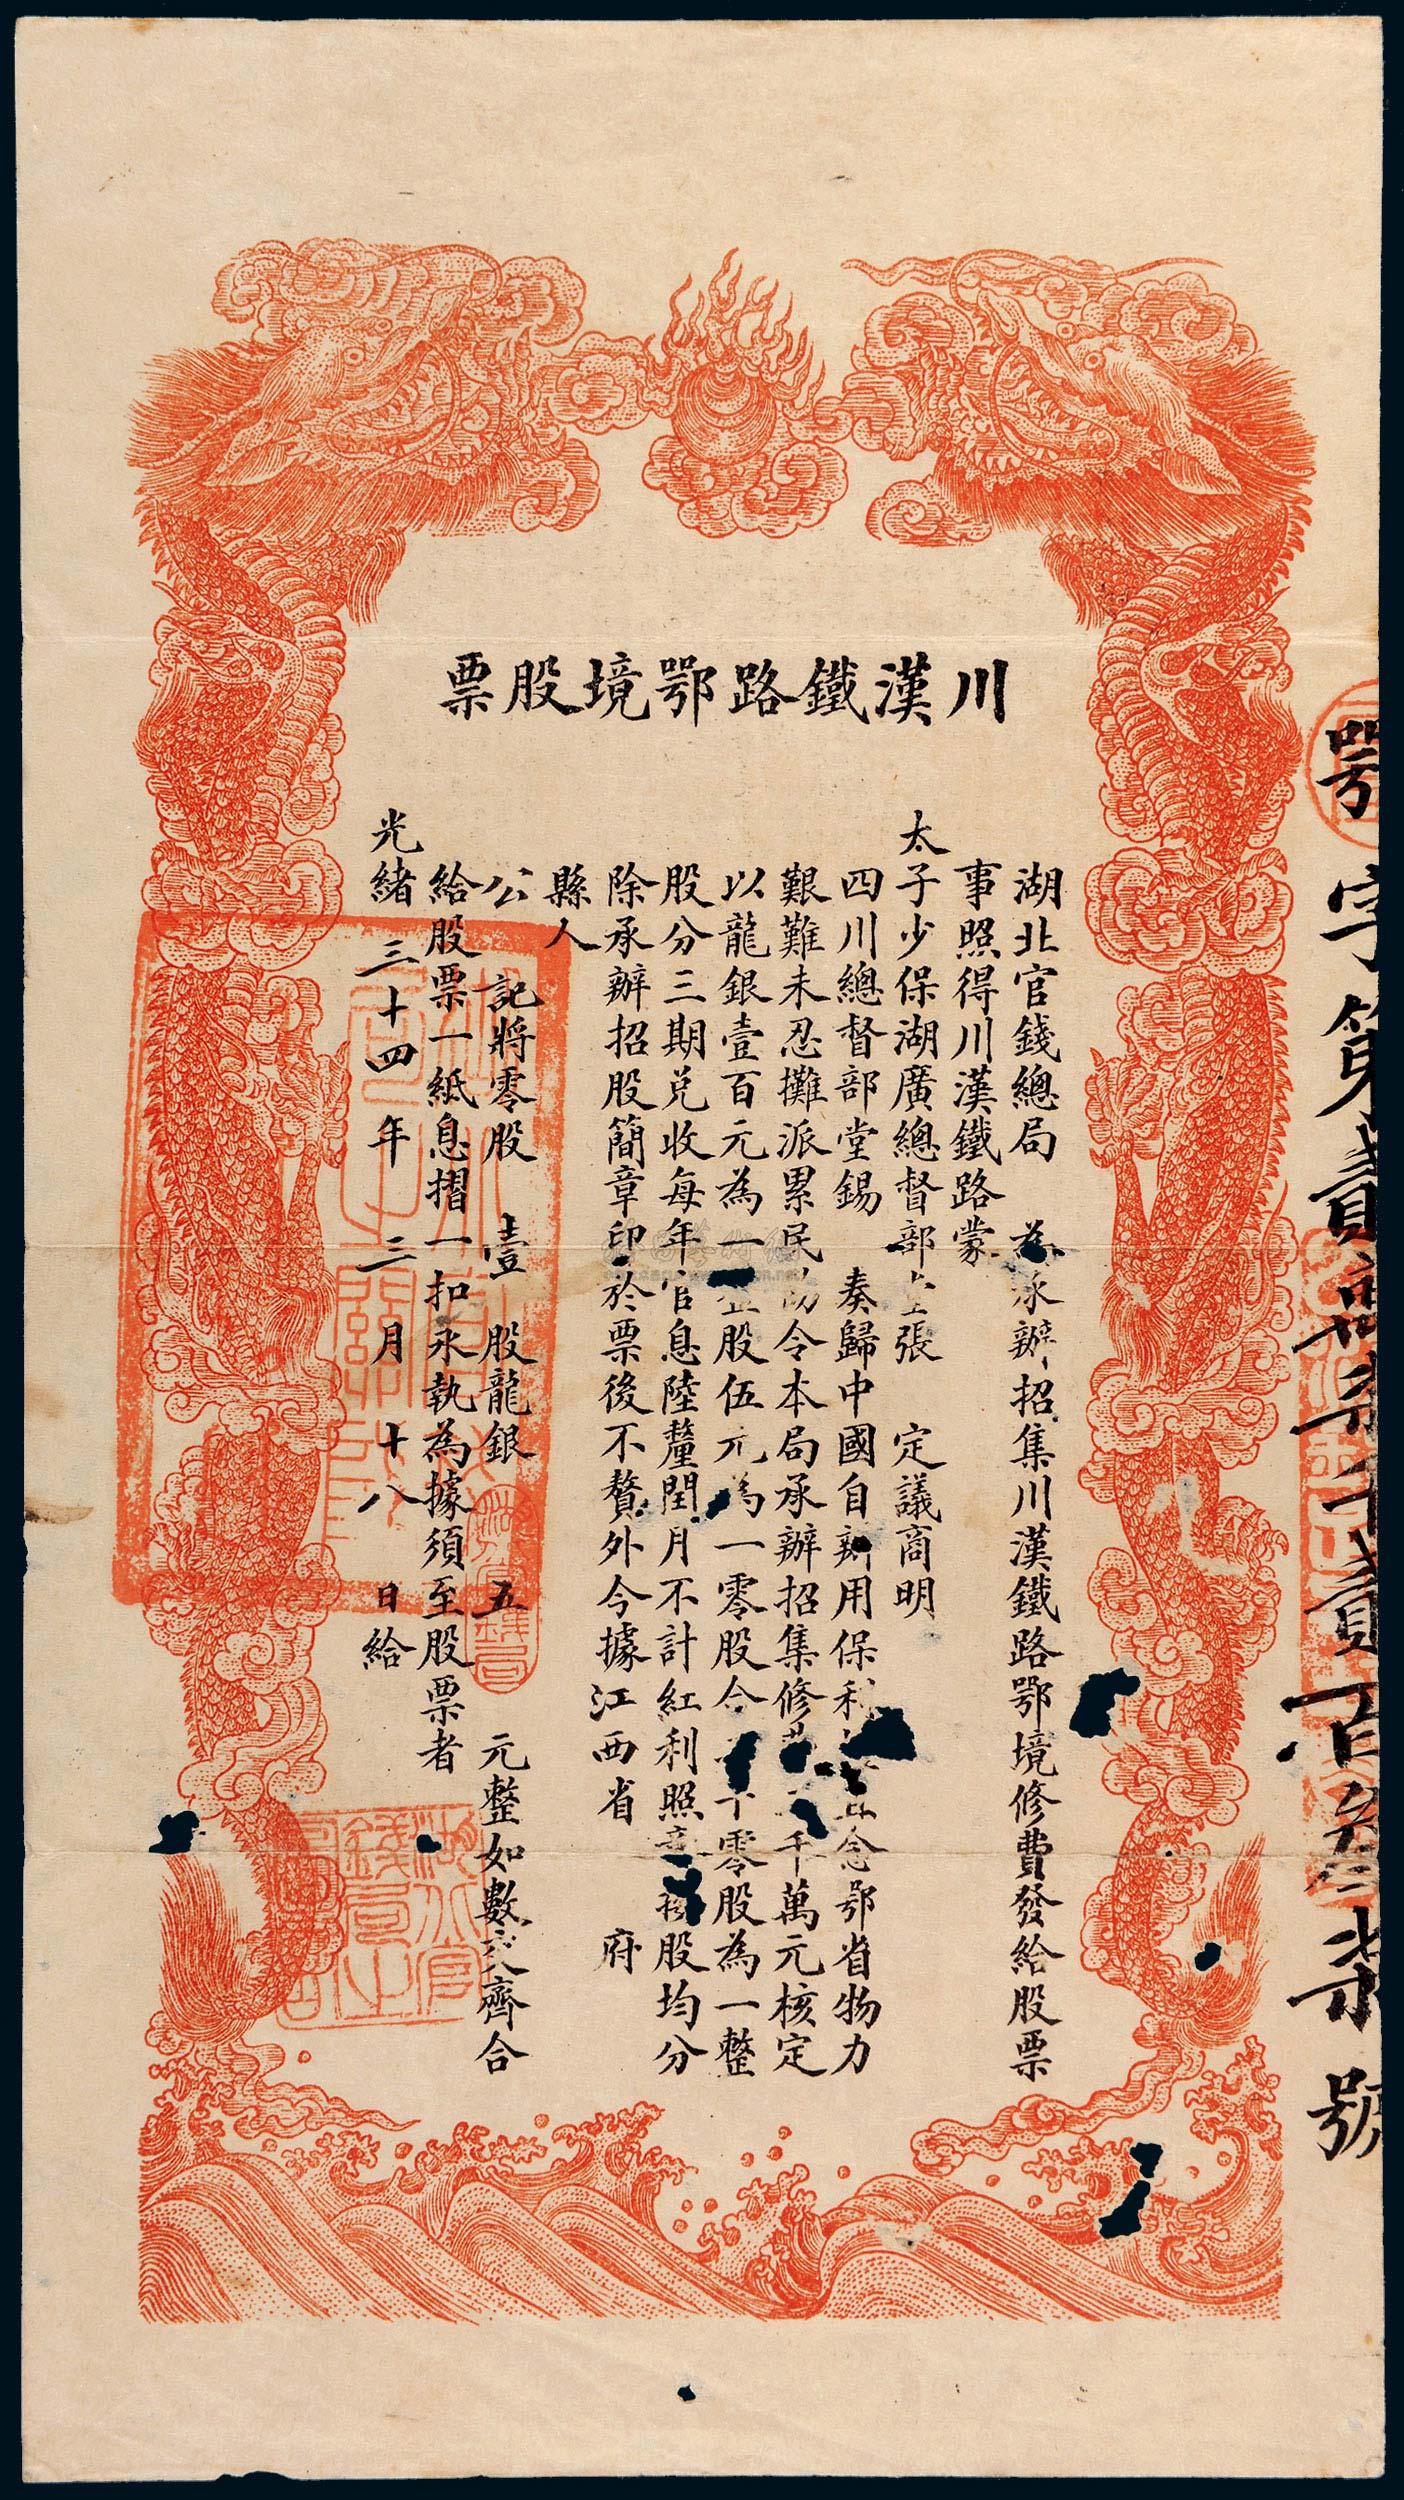 川漢鐵路鄂境股票
鄂字第貳萬柒千貳百叁柒號
湖北官錢總局 為承辦招集川漢鐵路鄂境修費發給股票
事照得川漢鐵路蒙
太子少保湖廣總督部堂張 定議商明
四川總督部堂錫 奏歸中國自辦用保利 念鄂省物力
艱難未忍攤派累民 令本局承辦招集修 千萬元核定
以龍銀壹百元為一整股伍元為一零股合 十零股為一整
股分三期兌收每年官息陸釐閏月不計紅利照章按股均分
除承辦招股簡章印於票後不贅外今據江西省 府
縣人
公記將零股壹股龍銀五元整如數交齊合
給股票一紙息摺一扣永執為據須至股票者
光緒三十四年三月十八日給
湖北官錢局之